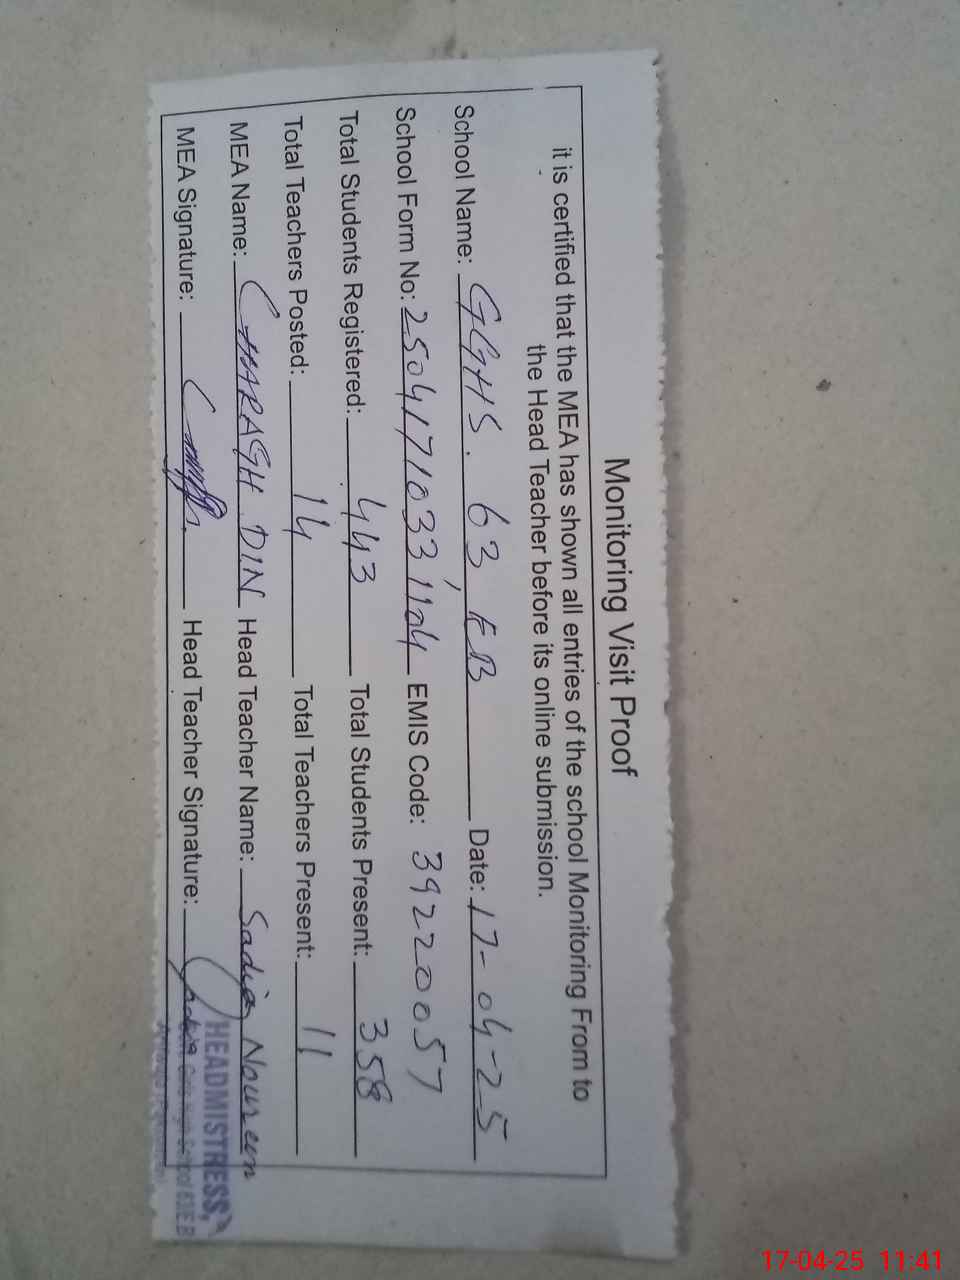 Monitoring Visit Proof
it is certified that the MEA has shown all entries of the school Monitoring From to
the Head Teacher before its online submission.
School Name: GGHS. 63 EB Date: 17-04-25
School Form No: 25041710331104 EMIS Code: 39220057
Total Students Registered: 443 Total Students Present: 358
Total Teachers Posted: 14 Total Teachers Present: 11
MEA Name: CHARAGH DIN Head Teacher Name: Sadia Noureen
MEA Signature: Head Teacher Signature: Sadia
HEADMISTRESS,
Girls High School 63/E.B
17-04-25 11:41